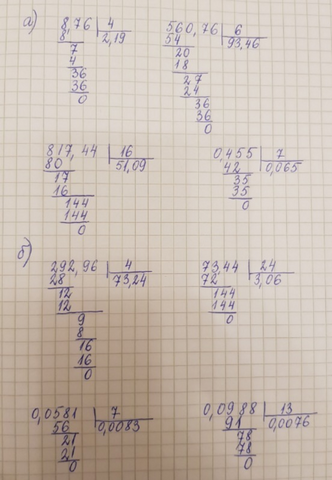 а)
8,76 | 4
8 | 2,19
7
4
36
36
0
560,76 | 6
54 | 93,46
20
18
27
24
36
36
0
817,44 | 16
80 | 51,09
17
16
144
144
0
0,455 | 7
42 | 0,065
35
35
0
б)
292,96 | 4
28 | 73,24
12
12
9
8
16
16
0
73,44 | 24
72 | 3,06
144
144
0
0,0581 | 7
56 | 0,0083
21
21
0
0,0988 | 13
91 | 0,0076
78
78
0